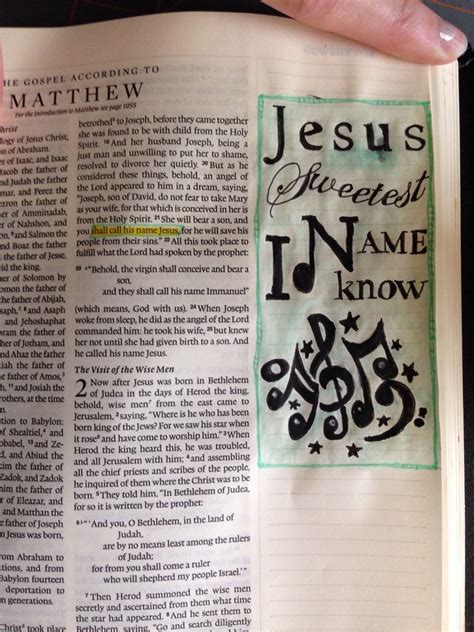 HE GOSPEL ACCORDING TO
MATTHEW
For the Introduction to Matthew see page 1055
hrist
logy of Jesus Christ,
on of Abraham.
of Isaac, and Isaac
Jacob the father of
nd Judah the father
mar, and Perez the
zron the father of
er of Amminadab,
of Nahshon, and
and Salmon
nd Boaz the father
the father of Jesse,
id the king.
of Solomon by
the father of
father of Abijah,
Asaph, and Asaph
and Jehoshaphat
oram the father of
father of Jotham,
nd Ahaz the father
iah the father of
father of Amos,
h, and Josiah the
others, at the time
tion to Babylon:
Shealtiel, and
bbabel, and Ze-
d, and Abiud the
im the father of
Zadok, and Zadok
im the father of
of Eleazar, and
nd Matthan the
father of Joseph
n Jesus was born,
rom Abraham to
ations, and from
Babylon fourteen
deportation to
n generations.
Christ took place
been
betrothed to Joseph, before they came together
she was found to be with child from the Holy
Spirit. 19 And her husband Joseph, being a
just man and unwilling to put her to shame,
resolved to divorce her quietly. 20 But as he
considered these things, behold, an angel of
the Lord appeared to him in a dream, saying,
"Joseph, son of David, do not fear to take Mary
as your wife, for that which is conceived in her is
from the Holy Spirit. 21 She will bear a son, and
you shall call his name Jesus, for he will save his
people from their sins." 22 All this took place to
fulfill what the Lord had spoken by the prophet:
23 "Behold, the virgin shall conceive and bear a
son,
and they shall call his name Immanuel"
(which means, God with us). 24 When Joseph
woke from sleep, he did as the angel of the Lord
commanded him: he took his wife, 25 but knew
her not until she had given birth to a son. And
he called his name Jesus.
The Visit of the Wise Men
2 Now after Jesus was born in Bethlehem
of Judea in the days of Herod the king,
behold, wise men from the east came to
Jerusalem, 2 saying, "Where is he who has been
born king of the Jews? For we saw his star when
it rose and have come to worship him." 3 When
Herod the king heard this, he was troubled,
and all Jerusalem with him; 4 and assembling
all the chief priests and scribes of the people,
he inquired of them where the Christ was to be
born. 5 They told him, "In Bethlehem of Judea,
for so it is written by the prophet:
6 "'And you, O Bethlehem, in the land of
Judah,
are by no means least among the rulers
of Judah;
for from you shall come a ruler
who will shepherd my people Israel.'"
7 Then Herod summoned the wise men
secretly and ascertained from them what time
the star had appeared. 8 And he sent them to
Bethlehem, saying, "Go and search diligently
Jesus
Sweetest
NAME
I
know